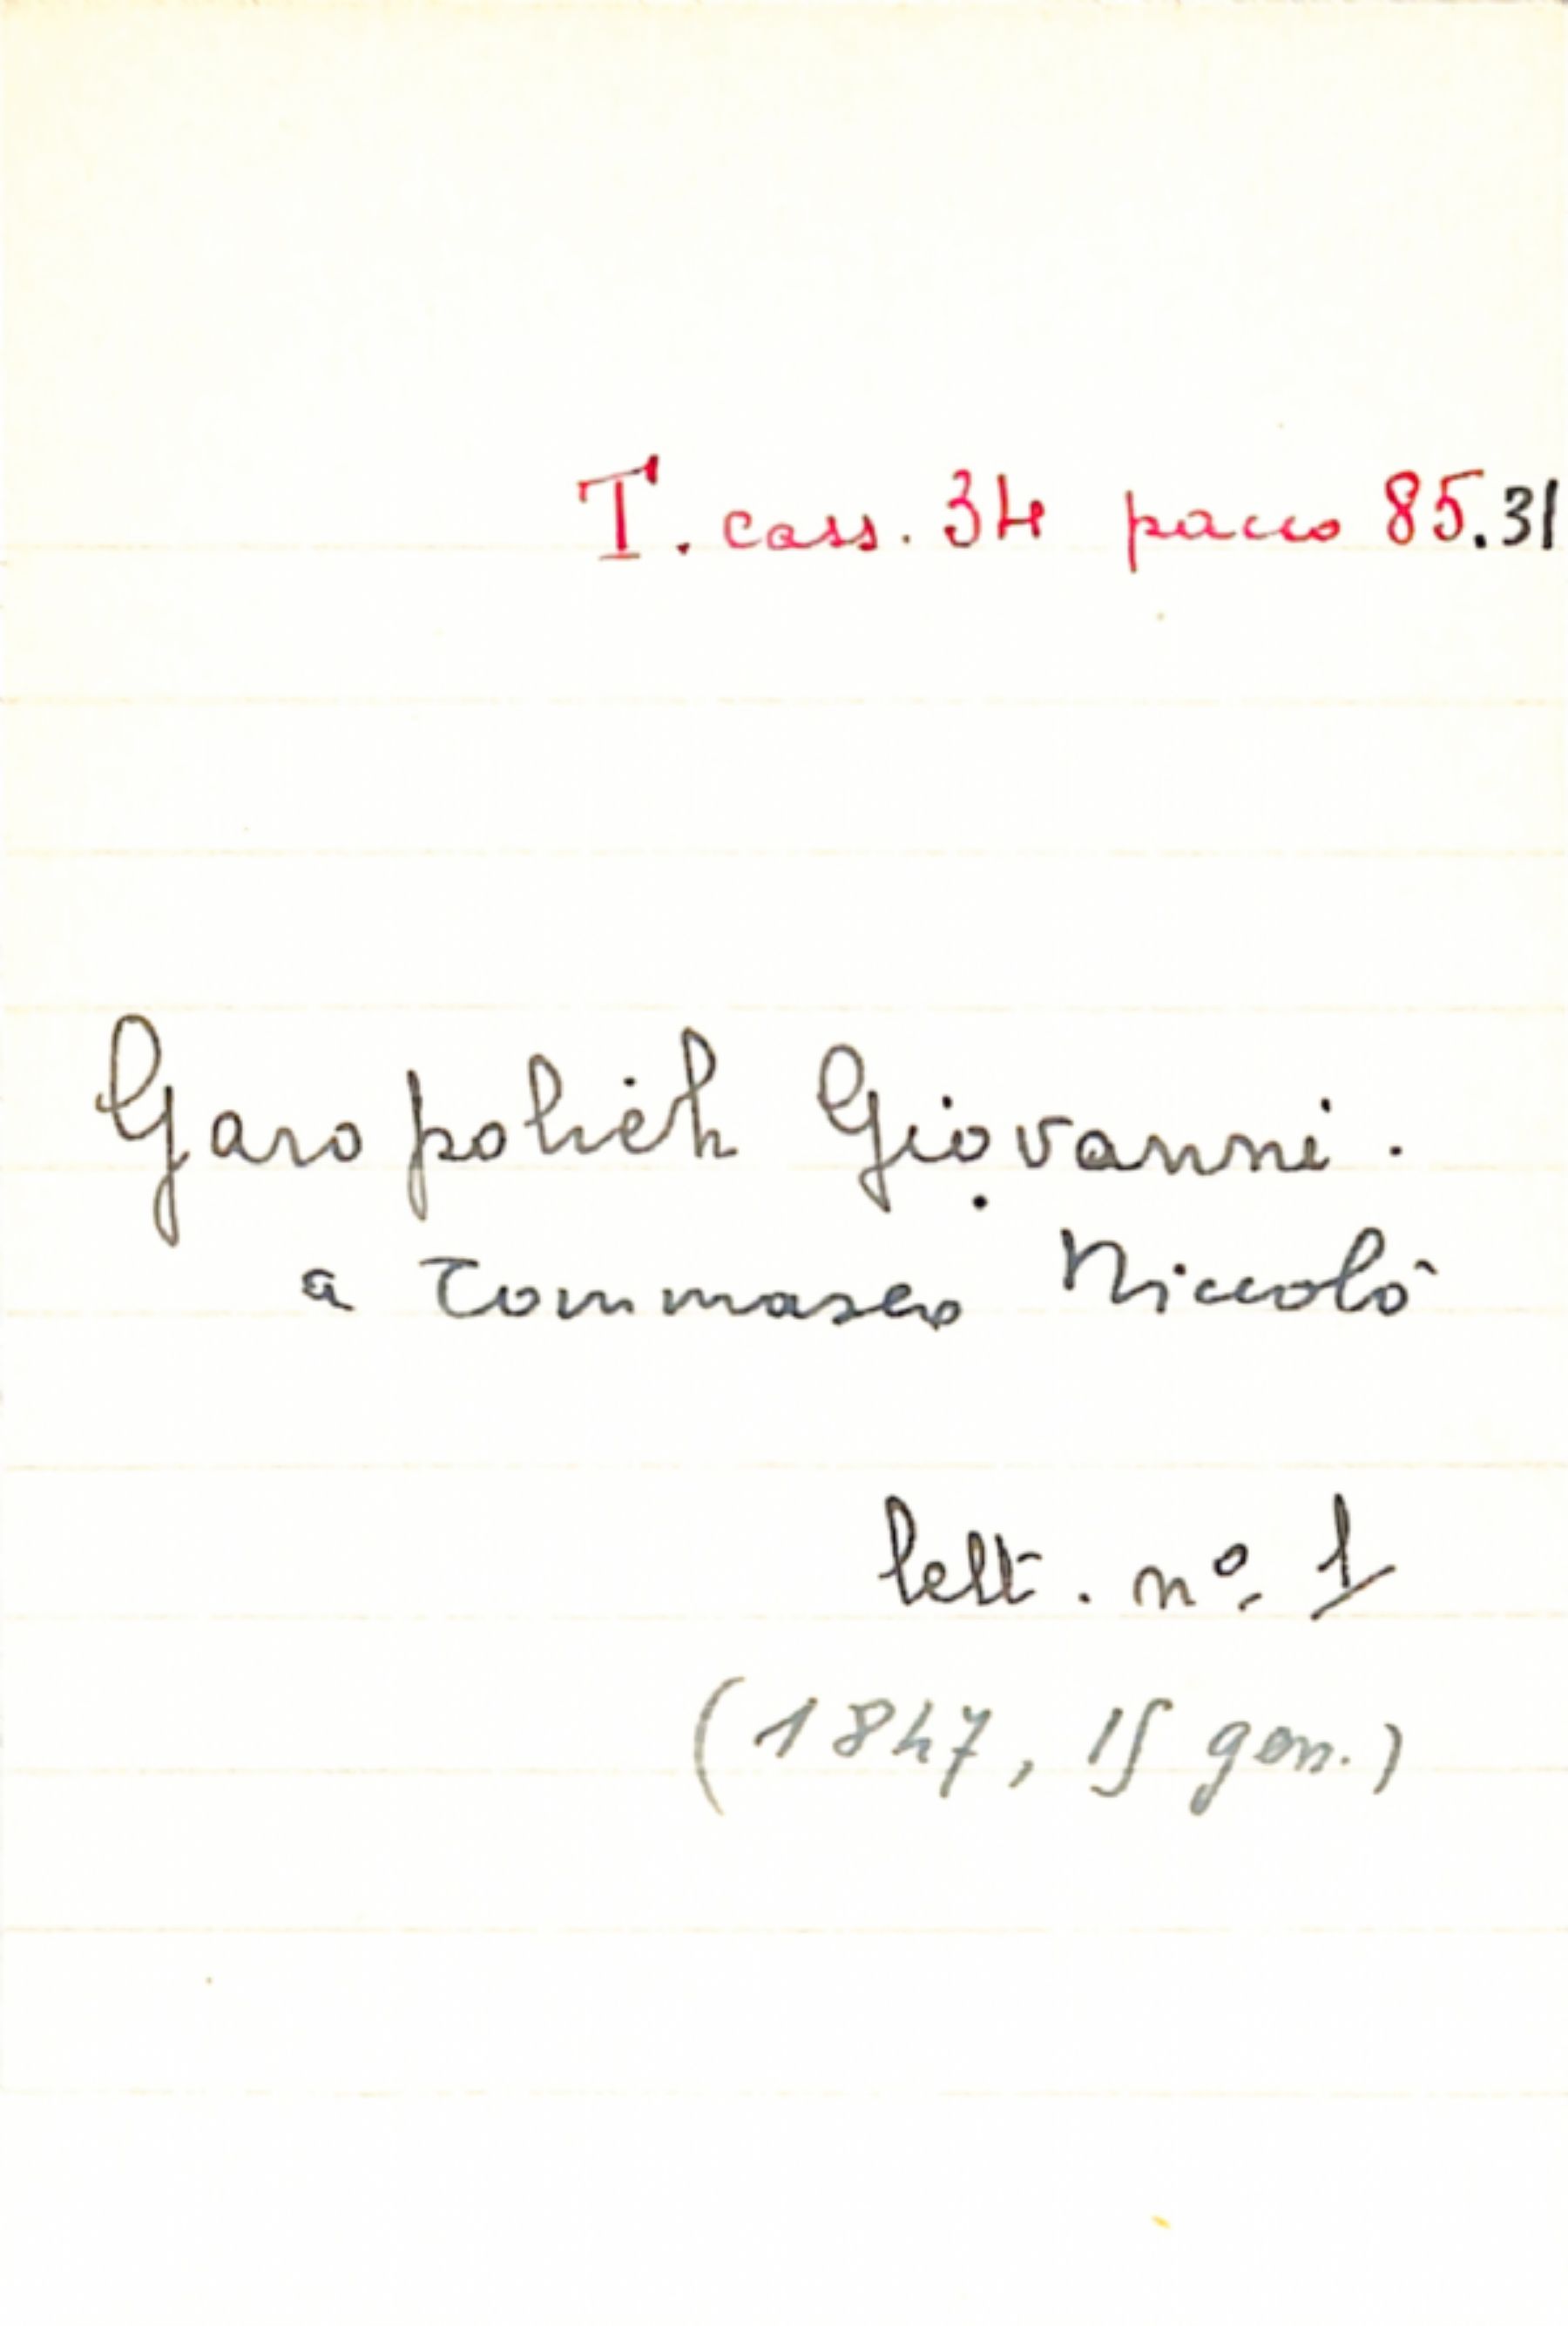 T. cass. 34 pacco 85.31
Garopolich Giovanni.
a Tommaseo Niccolò
lett. nº 1
(1847, 15 gen.)